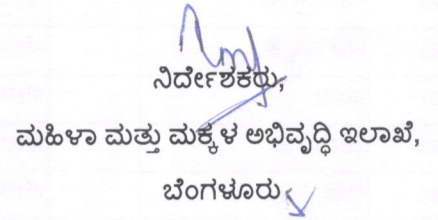 ನಿರ್ದೇಶಕರು,
ಮಹಿಳಾ ಮತ್ತು ಮಕ್ಕಳ ಅಭಿವೃದ್ಧಿ ಇಲಾಖೆ,
ಬೆಂಗಳೂರು